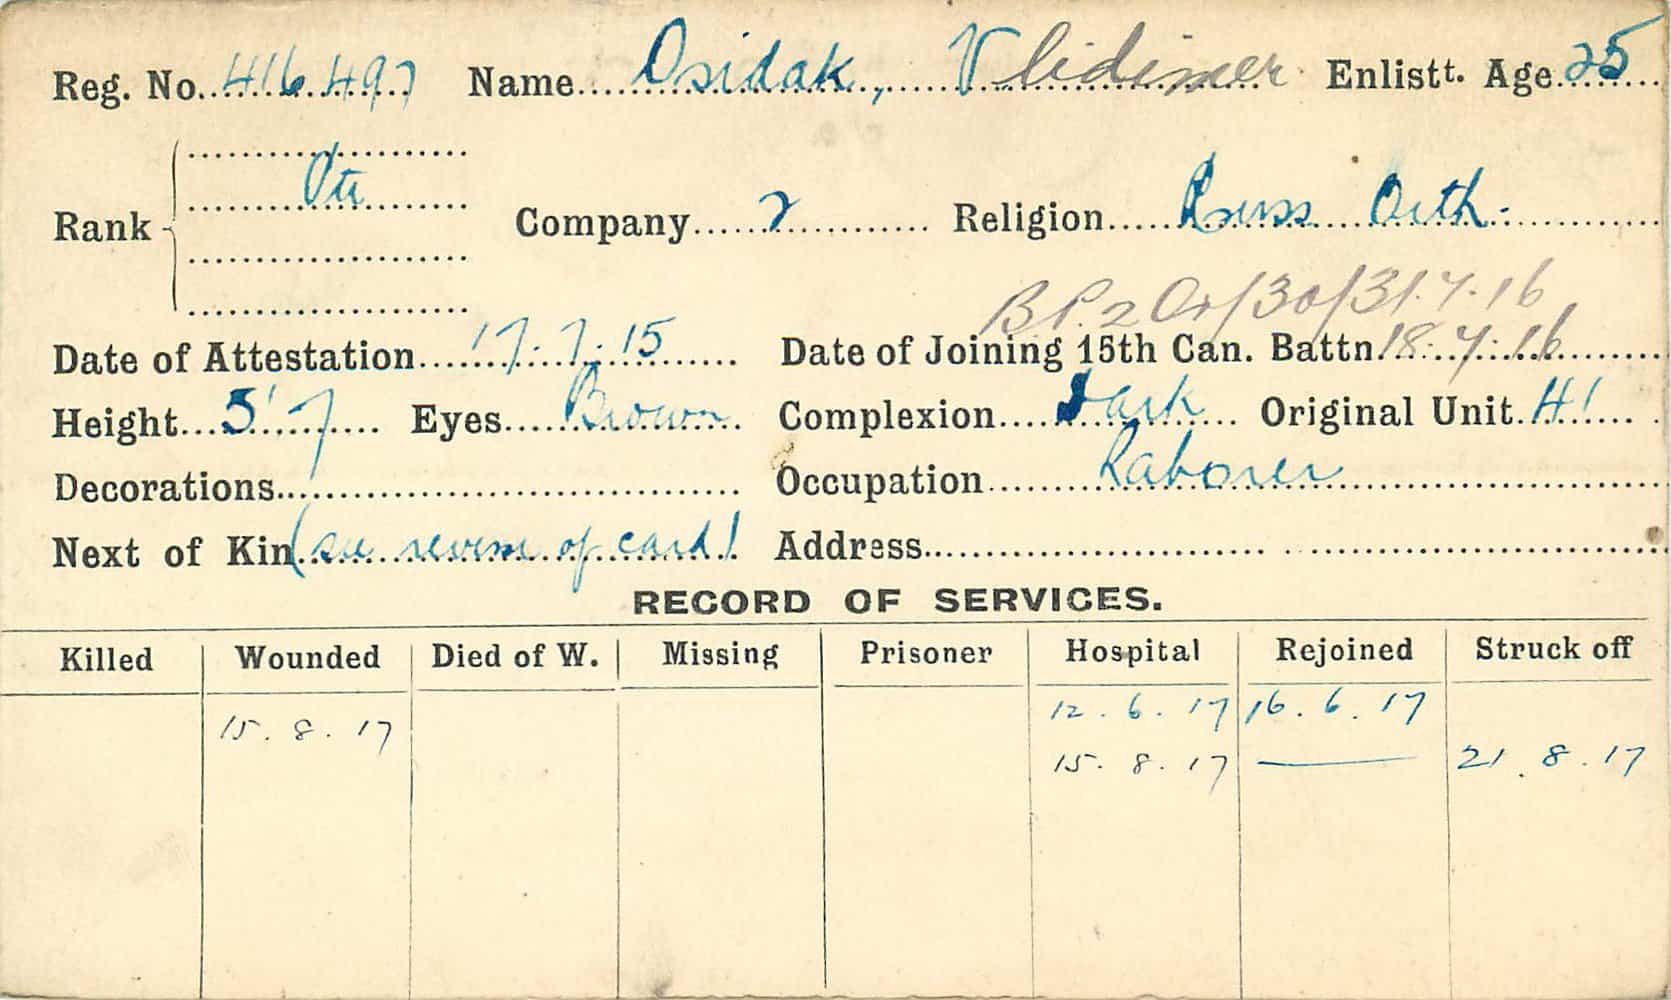 Reg. No. 416497 Name Osidak, Vlidimer Enlistt. Age 25
Pte
Rank Company 2 Religion Russ Orth.
B.P.2 Or/30/31.7.16
Date of Attestation 17.7.15 Date of Joining 15th Can. Battn. 18.7.16
Height 5'7 Eyes Brown Complexion Dark Original Unit 41
Decorations Occupation Laborer
Next of Kin (see reverse of card) Address
RECORD OF SERVICES.
Killed Wounded Died of W. Missing Prisoner Hospital Rejoined Struck off
15.8.17 12.6.17 16.6.17
15.8.17 — 21.8.17